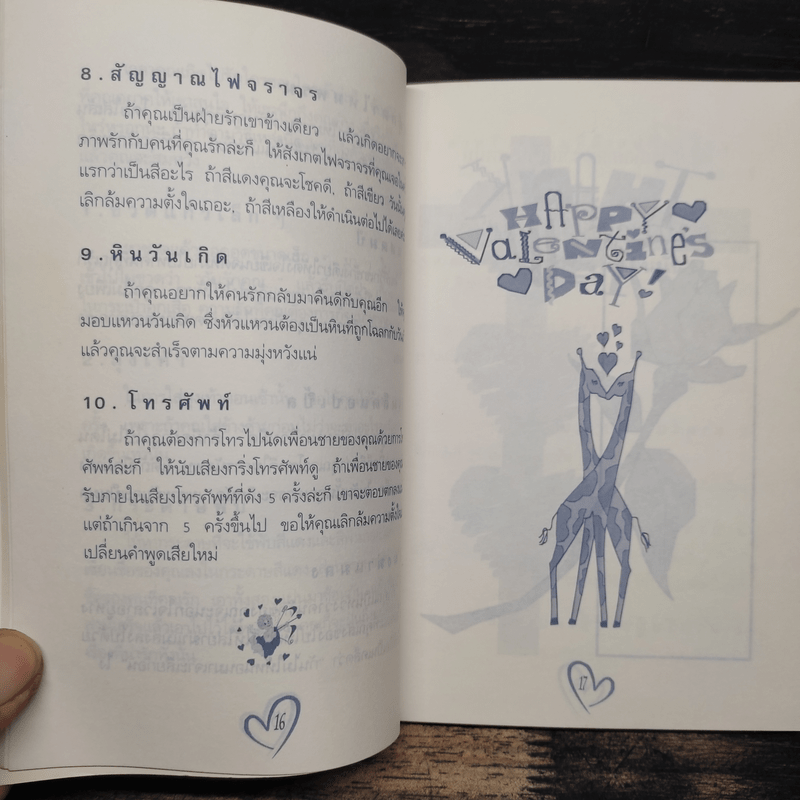 8. สัญญาณไฟจราจร
ถ้าคุณเป็นฝ่ายรักเขาข้างเดียว แล้วเกิดอยาก
ภาพรักกับคนที่คุณรักล่ะก็ ให้สังเกตไฟจราจรที่คุณ
แรกว่าเป็นสีอะไร ถ้าสีแดงคุณจะโชคดี, ถ้าสีเขียว วันนั้น
เลิกล้มความตั้งใจเถอะ, ถ้าสีเหลืองให้ดำเนินต่อไปได้
9. หินวันเกิด
ถ้าคุณอยากให้คนรักกลับมาคืนดีกับคุณอีก
มอบแหวนวันเกิด ซึ่งหัวแหวนต้องเป็นหินที่ถูกโฉลกกับ
แล้วคุณจะสำเร็จตามความมุ่งหวังแน่
10. โทรศัพท์
ถ้าคุณต้องการโทรไปนัดเพื่อนชายของคุณด้วยการ
ศัพท์ล่ะก็ ให้นับเสียงกริ่งโทรศัพท์ดู ถ้าเพื่อนชายของ
รับภายในเสียงโทรศัพท์ที่ดัง 5 ครั้งล่ะก็ เขาจะตอบตกลง
แต่ถ้าเกินจาก 5 ครั้งขึ้นไป ขอให้คุณเลิกล้มความตั้งใจ
เปลี่ยนคำพูดเสียใหม่
16
HAPPY
ValeNtine's
DaY!
17